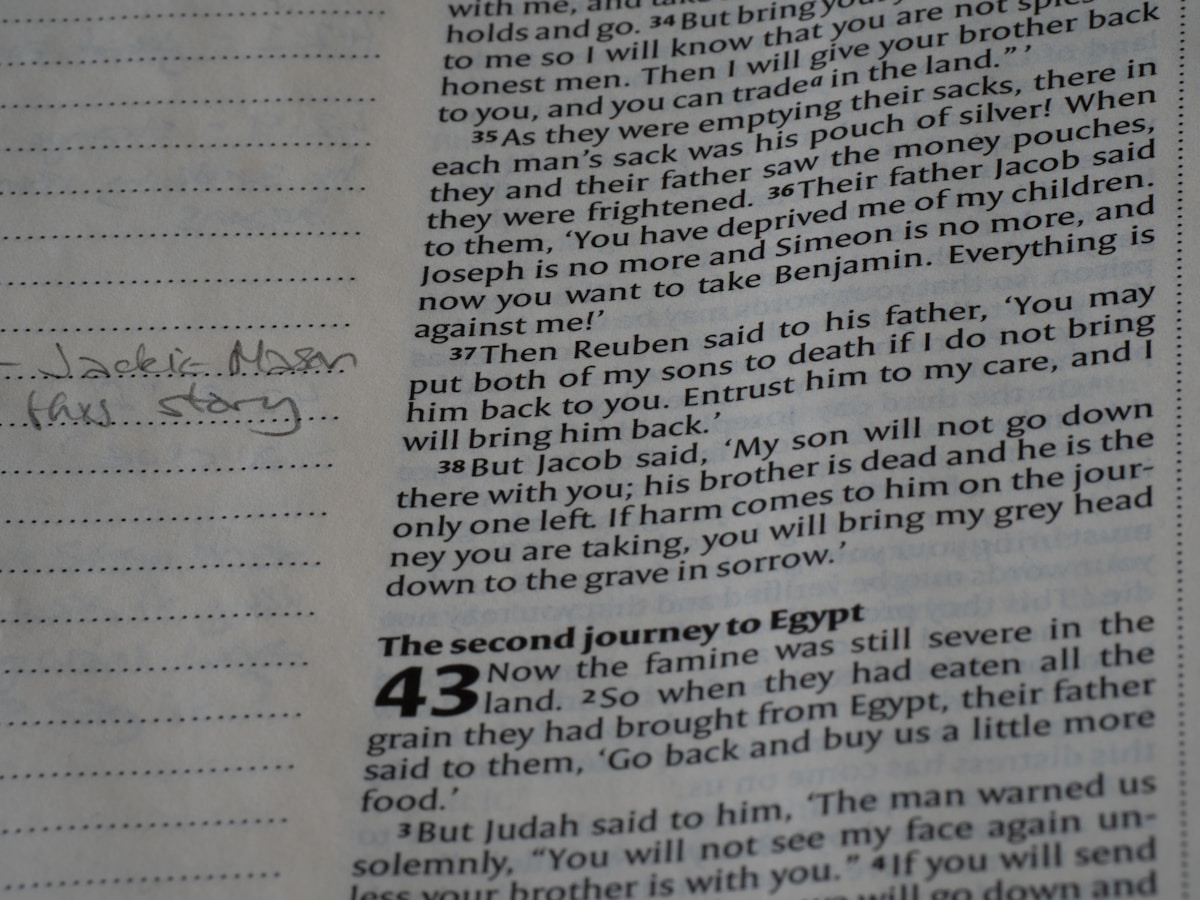 - Jackie Mason
this story
with me, and take
holds and go. 34 But bring your
to me so I will know that you are not spies
honest men. Then I will give your brother back
to you, and you can trade a in the land.” ’
35 As they were emptying their sacks, there in
each man’s sack was his pouch of silver! When
they and their father saw the money pouches,
they were frightened. 36 Their father Jacob said
to them, ‘You have deprived me of my children.
Joseph is no more and Simeon is no more, and
now you want to take Benjamin. Everything is
against me!’
37 Then Reuben said to his father, ‘You may
put both of my sons to death if I do not bring
him back to you. Entrust him to my care, and I
will bring him back.’
38 But Jacob said, ‘My son will not go down
there with you; his brother is dead and he is the
only one left. If harm comes to him on the jour-
ney you are taking, you will bring my grey head
down to the grave in sorrow.’
The second journey to Egypt
43 Now the famine was still severe in the
land. 2 So when they had eaten all the
grain they had brought from Egypt, their father
said to them, ‘Go back and buy us a little more
food.’
3 But Judah said to him, ‘The man warned us
solemnly, “You will not see my face again un-
less your brother is with you.” 4 If you will send
will go down and